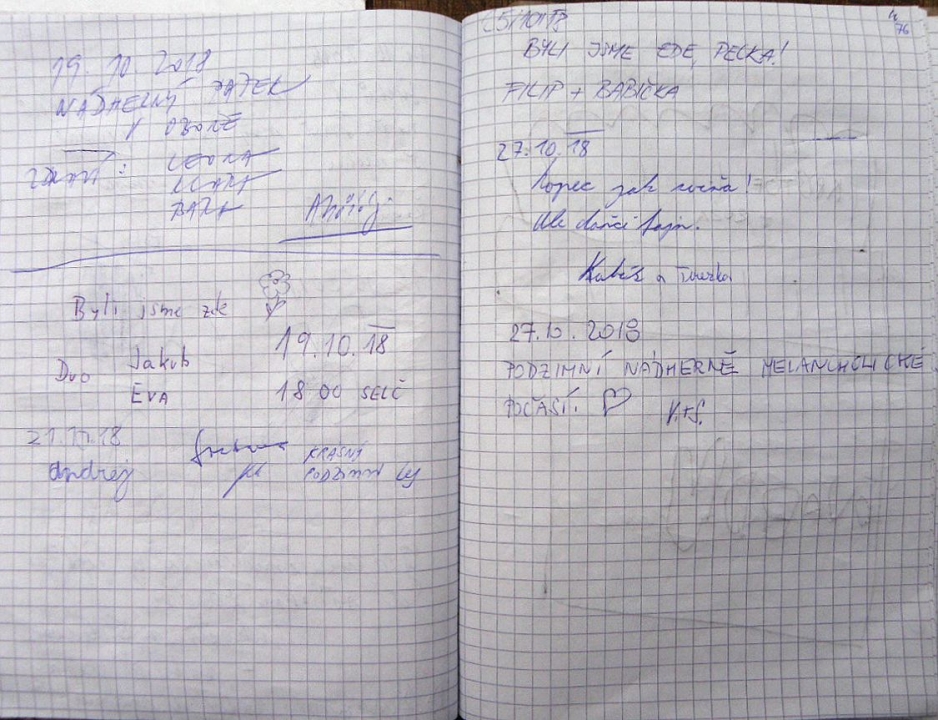 19. 10. 2018
NÁDHERNÝ PÁTEK
V OBOŘE
ZDRAVÍ:
LEONA
BÁRA
Byli jsme zde
Duo Jakub
EVA
19.10.18
18 00 SELČ
21.10.18
Andrej
KRÁSNÝ
PODZIMNÍ
25/10/18
76
BYLI JSME ZDE, PECKA!
FILIP + BABIČKA
27.10.18
Kopec jak sviňa!
Ale dončí fajn.
Kubík a Terezka
27.10.2018
PODZIMNÍ NÁDHERNĚ MELANCHOLICKÉ
POČASÍ. ♡